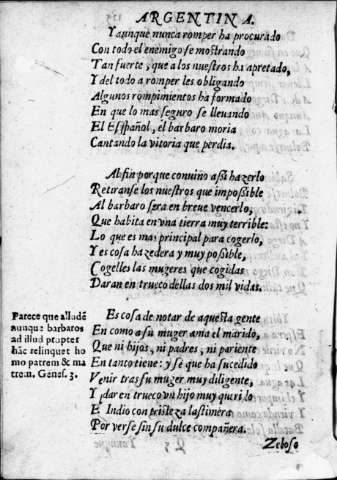 ARGENTINA.
Y aunque nunca romper ha procurado
Con todo el enemigo se mostrando
Tan fuerte, que a los nuestros ha apretado,
Y del todo a romper les obligando
Algunos rompimientos ha formado
En que lo mas seguro se lleuando
El Español, el barbaro moria
Cantando la vitoria que perdia.
Al fin porque conuino assi hazerlo
Retiranse los nuestros que impossible
Al barbaro sera en breue vencerlo,
Que habita en vna tierra muy terrible:
Lo que es mas principal para cogerlo,
Y es cosa hazedera y muy possible,
Cogelles las mugeres que cogidas
Daran en trueco dellas dos mil vidas.
Es cosa de notar de aquesta gente
En como a su muger ama el marido,
Que ni hijos, ni padres, ni pariente
En tanto tiene: y se que ha sucedido
Venir tras su muger muy diligente,
Y dar en trueco vn hijo muy querilo
El Indio con tristeza lastimera
Por verse sin su dulce compañera.
Parece que alludē
aunque barbaros
ad illud propter
hāc relinquet ho
mo patrem & ma
trem. Genes. 3.
Zeloso